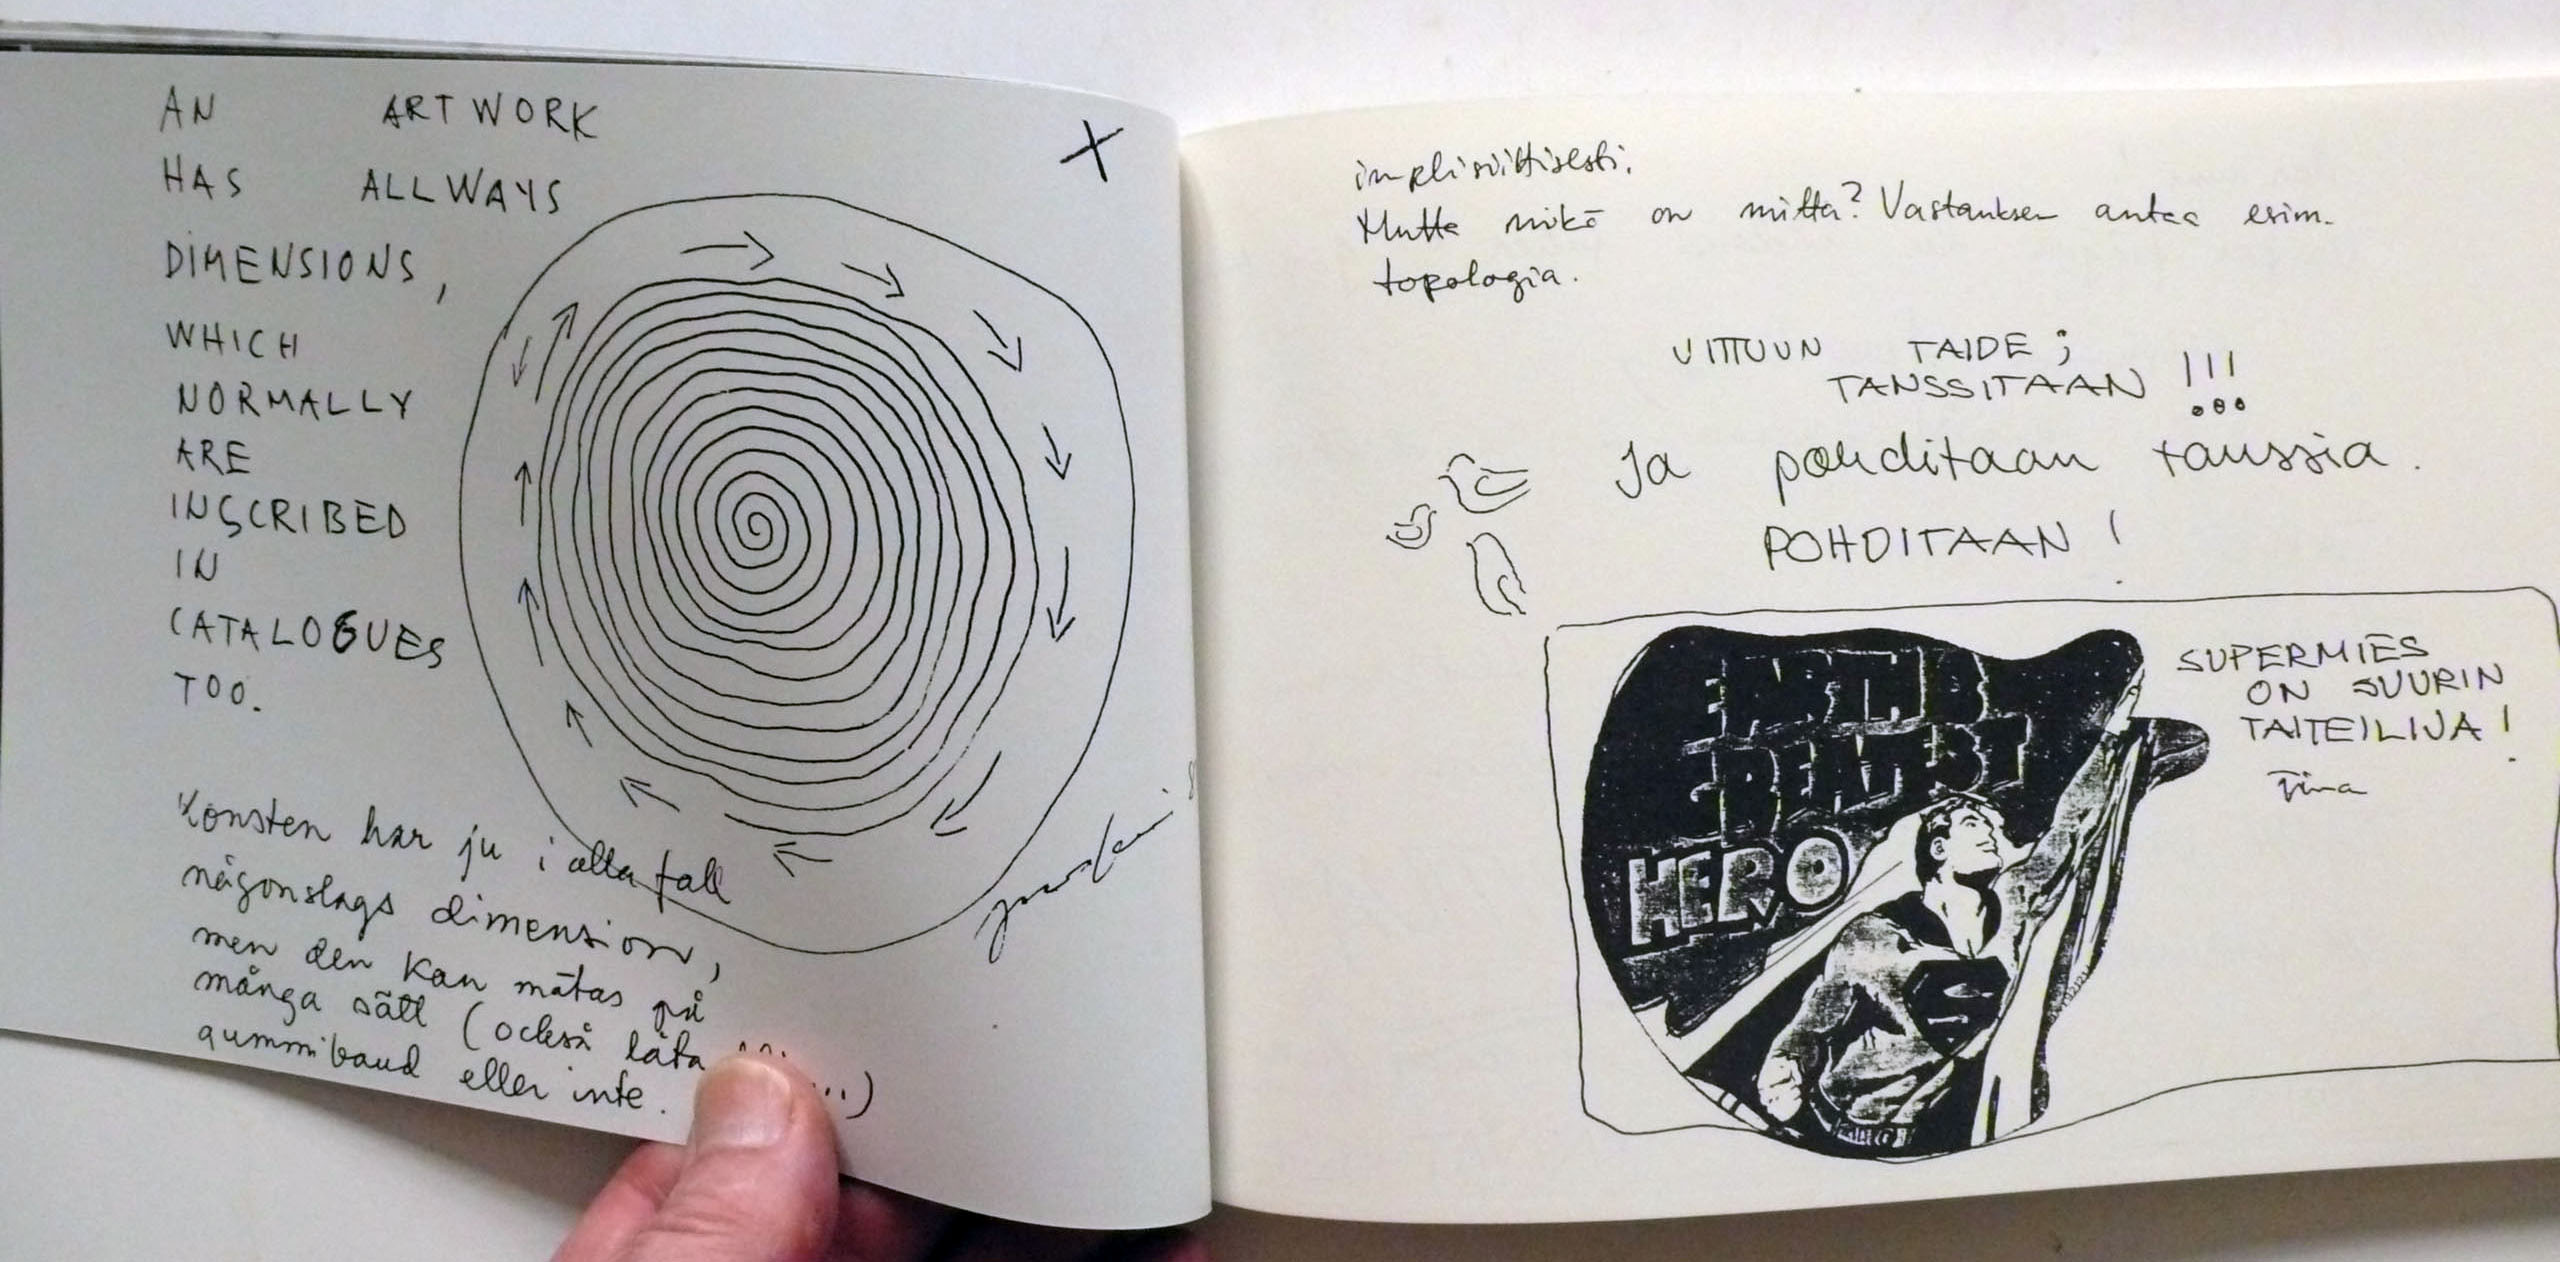 AN ARTWORK
HAS ALLWAYS
DIMENSIONS,
WHICH
NORMALLY
ARE
INSCRIBED
IN
CATALOGUES
TOO.
Konsten har ju i alla fall
någonslags dimension,
men den kan mätas på
många sätt (också låta ...)
gummiband eller inte.
implisiittisesti.
Mutta mikä on mitta? Vastauksen antaa esim.
topologia.
VITTUUN TAIDE;
TANSSITAAN !!!
Ja pohditaan tanssia.
POHDITAAN!
EARTH'S
GREATEST
HERO
S
SUPERMIES
ON SUURIN
TAITEILIJA!
Tina